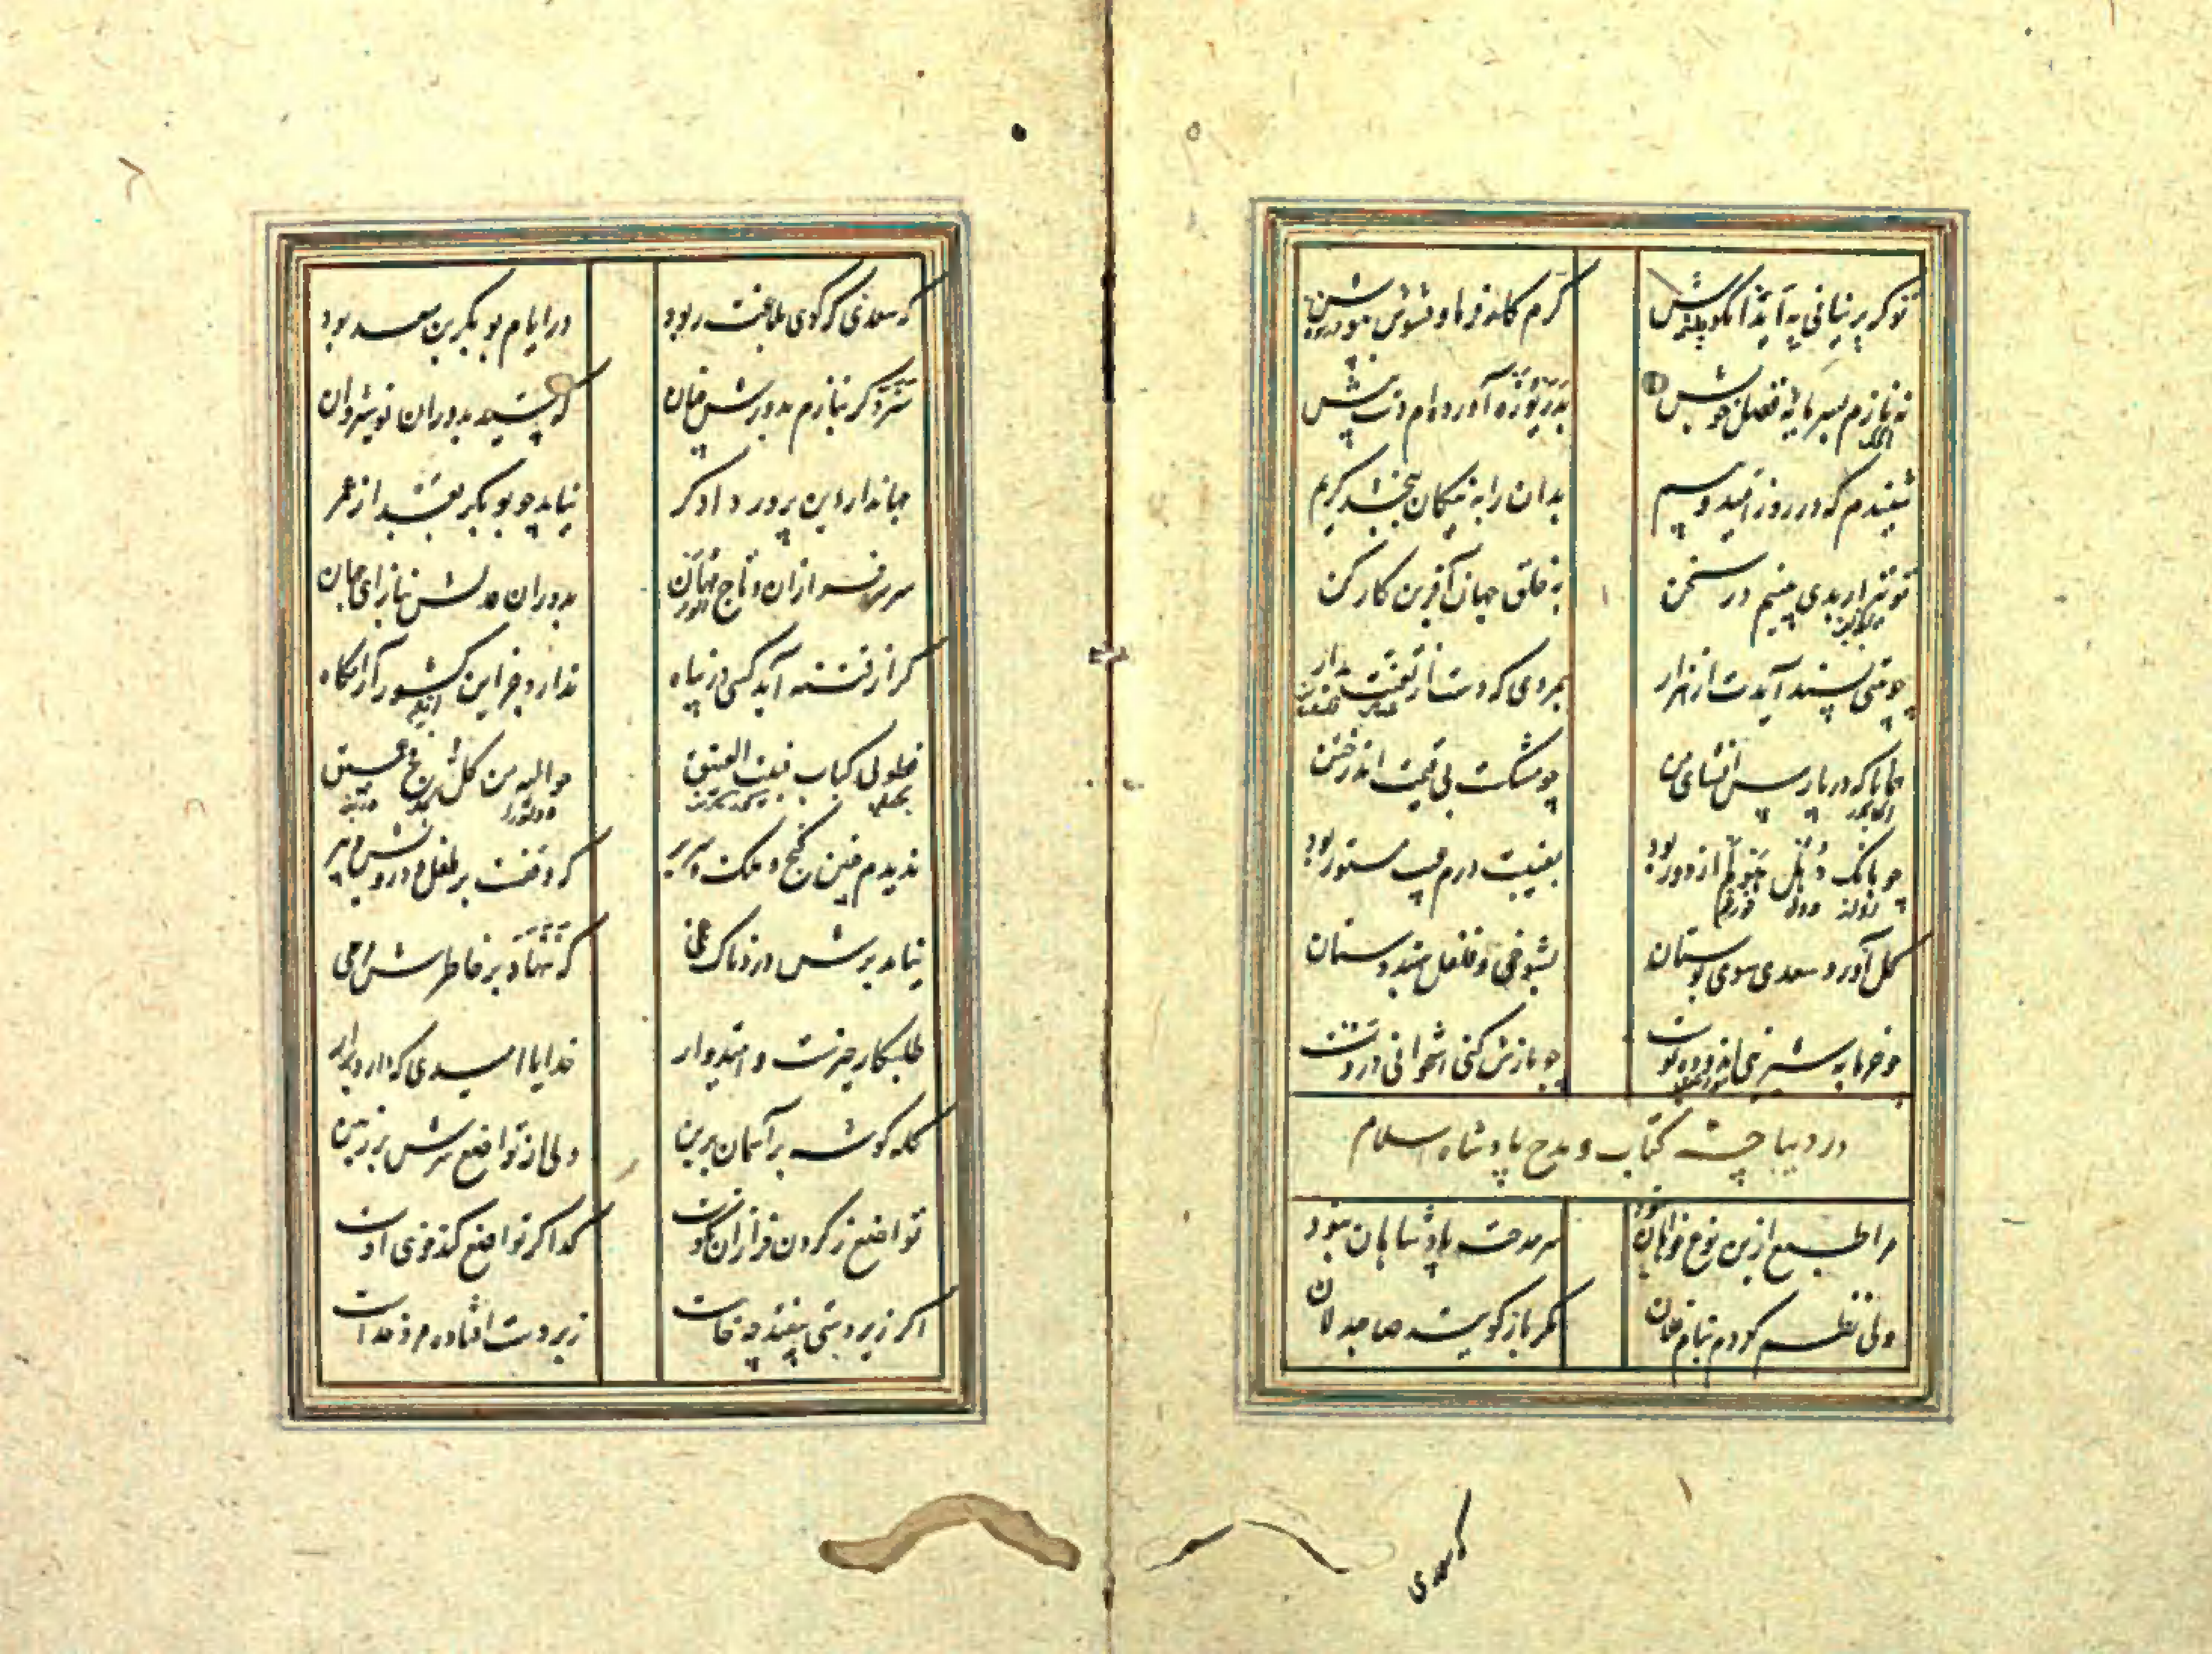 تو گر پرنیانی نیابی مجوش کرم کارفرما و حشوش بپوش
ننازم بسرمایه فضل خویش بدریوزه آورده ام دست پیش
شنیدم که در روز امید و بیم بدان را به نیکان ببخشد کریم
تو نیز ار بدی بینیم در سخن به خلق جهان آفرین کار کن
چو بیتی پسند آیدت از هزار بمردی که دست از تعنت بدار
همانا که در پارس انشای من چو مشکست بی قیمت اندر ختن
چو بانک دهل هولم از دور بود بغیبت درم عیب مستور بود
گل آورد سعدی سوی بوستان بشوخی و فلفل بهندوستان
چو خرما به شیرینی اندوده پوست چو بازش کنی استخوانی دروست
در دیباچه کتاب و مدح پادشاه اسلام
مرا طبع ازین نوع خواهان نبود سر مدحت پادشاهان نبود
ولی نظم کردم بنام فلان مگر باز گویند صاحبدلان
که سعدی
که سعدی که گوی بلاغت ربود در ایام بوبکر بن سعد بود
سزد گر بنازم بدورش چنان که سید بدوران نوشیروان
جهاندار دین پرور دادگر نیامد چو بوبکر بعد از عمر
سر سرفرازان و تاج مهان بدوران عدلش بناز ای جهان
گر از فتنه آید کسی در پناه ندارد جز این کشور آرامگاه
فطوبی لباب کبیت العتیق حوالیه من کل فج عمیق
ندیدم چنین گنج و ملک و سریر که وقفست بر طفل و درویش و پیر
نیامد برش دردناک غمی که ننهاد بر خاطرش مرهمی
طلبکار خیرست و امیدوار خدایا امیدی که دارد برآر
کله گوشه بر آسمان برین ولی از تواضع سرش بر زمین
تواضع ز گردن فرازان نکوست گدا گر تواضع کند خوی اوست
اگر زیردستی بیفتد چه خاست زبردست افتاده مرد خداست